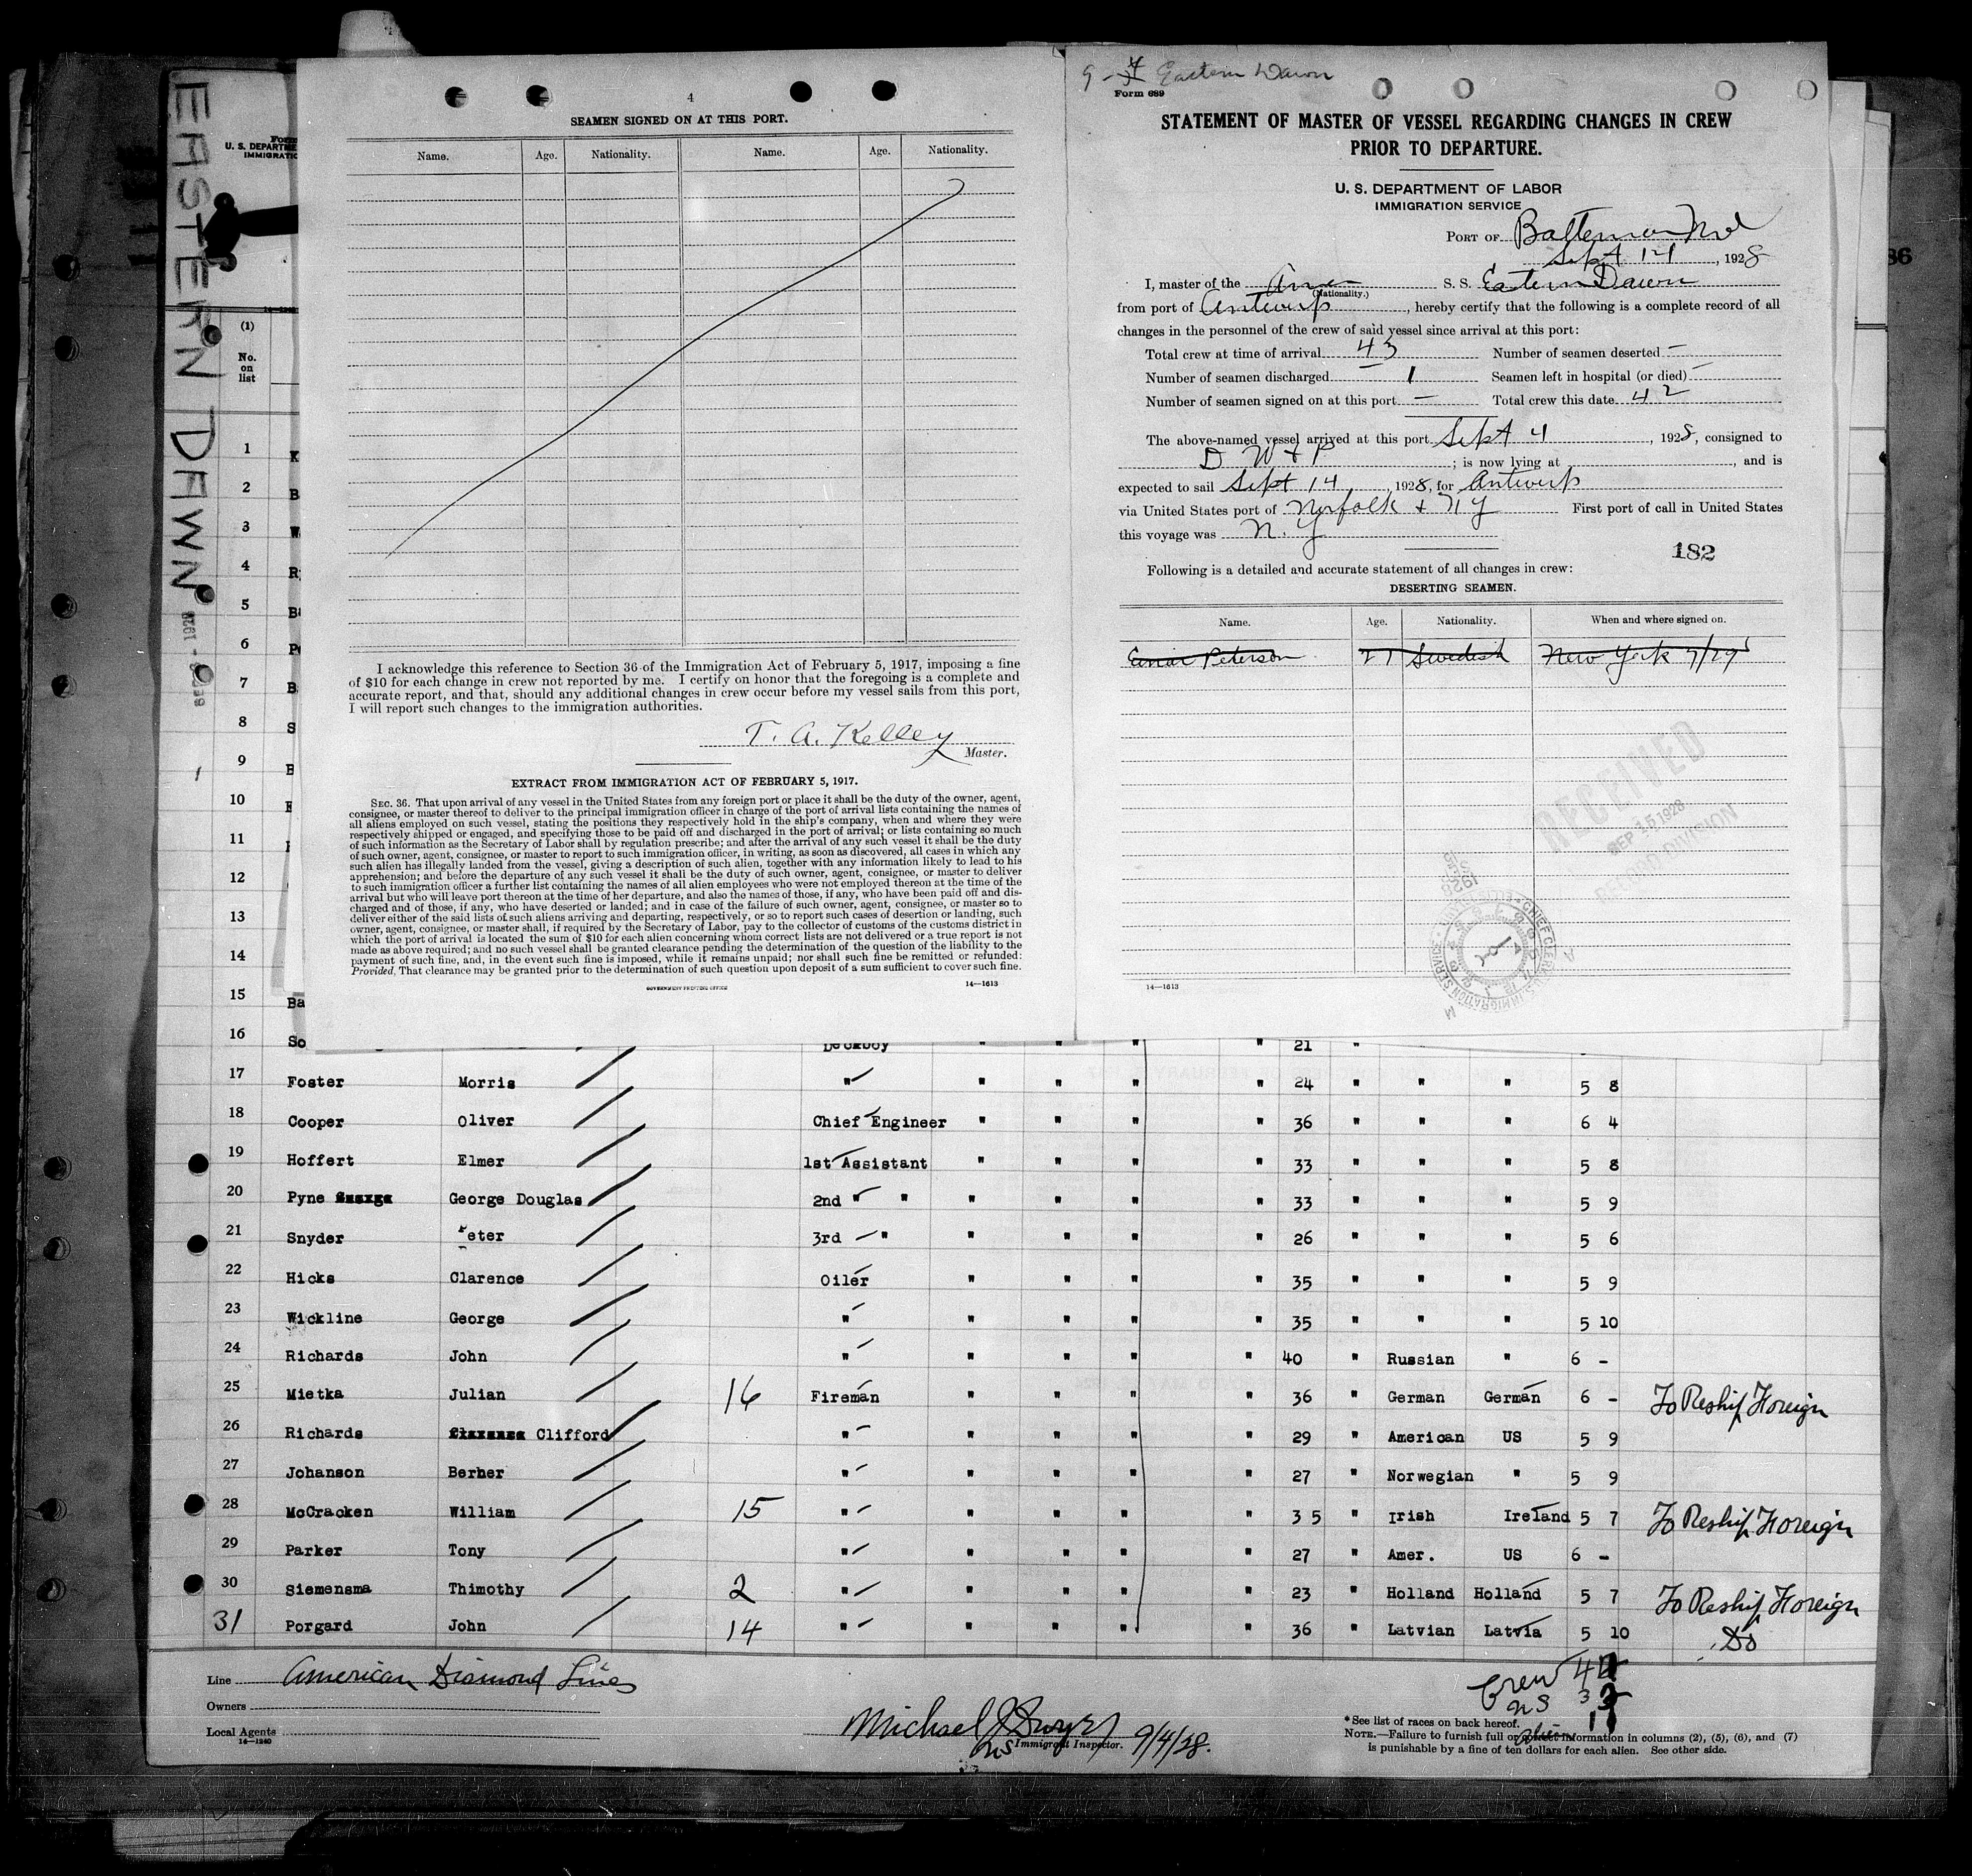 EASTERN DAWN
4
SEAMEN SIGNED ON AT THIS PORT.
Name. Age. Nationality. Name. Age. Nationality.
I acknowledge this reference to Section 36 of the Immigration Act of February 5, 1917, imposing a fine
of $10 for each change in crew not reported by me. I certify on honor that the foregoing is a complete and
accurate report, and that, should any additional changes in crew occur before my vessel sails from this port,
I will report such changes to the immigration authorities.
T. A. Kelley
Master.
EXTRACT FROM IMMIGRATION ACT OF FEBRUARY 5, 1917.
SEC. 36. That upon arrival of any vessel in the United States from any foreign port or place it shall be the duty of the owner, agent,
consignee, or master thereof to deliver to the principal immigration officer in charge of the port of arrival lists containing the names of
all aliens employed on such vessel, stating the positions they respectively hold in the ship's company, when and where they were
respectively shipped or engaged, and specifying those to be paid off and discharged in the port of arrival; or lists containing so much
of such information as the Secretary of Labor shall by regulation prescribe; and after the arrival of any such vessel it shall be the duty
of such owner, agent, consignee, or master to report to such immigration officer, in writing, as soon as discovered, all cases in which any
such alien has illegally landed from the vessel, giving a description of such alien, together with any information likely to lead to his
apprehension; and before the departure of any such vessel it shall be the duty of such owner, agent, consignee, or master to deliver
to such immigration officer a further list containing the names of all alien employees who were not employed thereon at the time of the
arrival but who will leave port thereon at the time of her departure, and also the names of those, if any, who have been paid off and dis-
charged and of those, if any, who have deserted or landed; and in case of the failure of such owner, agent, consignee, or master so to
deliver either of the said lists of such aliens arriving and departing, respectively, or so to report such cases of desertion or landing, such
owner, agent, consignee, or master shall, if required by the Secretary of Labor, pay to the collector of customs of the customs district in
which the port of arrival is located the sum of $10 for each alien concerning whom correct lists are not delivered or a true report is not
made as above required; and no such vessel shall be granted clearance pending the determination of the question of the liability to the
payment of such fine, and, in the event such fine is imposed, while it remains unpaid; nor shall such fine be remitted or refunded:
Provided, That clearance may be granted prior to the determination of such question upon deposit of a sum sufficient to cover such fine.
GOVERNMENT PRINTING OFFICE 14—1613
Eastern Dawn
Form 689
STATEMENT OF MASTER OF VESSEL REGARDING CHANGES IN CREW
PRIOR TO DEPARTURE.
U. S. DEPARTMENT OF LABOR
IMMIGRATION SERVICE
PORT OF Baltimore Md
Sept 14, 1928
I, master of the Amer S. S. Eastern Dawn
(Nationality.)
from port of Antwerp, hereby certify that the following is a complete record of all
changes in the personnel of the crew of said vessel since arrival at this port:
Total crew at time of arrival 43 Number of seamen deserted —
Number of seamen discharged 1 Seamen left in hospital (or died) —
Number of seamen signed on at this port — Total crew this date 42
The above-named vessel arrived at this port Sept 4, 1928, consigned to
D W & P; is now lying at , and is
expected to sail Sept 14, 1928, for Antwerp
via United States port of Norfolk & NY First port of call in United States
this voyage was N. Y
182
Following is a detailed and accurate statement of all changes in crew:
DESERTING SEAMEN.
Name. Age. Nationality. When and where signed on.
Einar Peterson 27 Swedish New York 7/29
RECEIVED
SEP 15 1928
RECORD DIVISION
CHIEF CLERK U.S. IMMIGRATION SERVICE
14—1613
86
U. S. DEPARTME
IMMIGRATIO
(1)
No.
on
list
1 K
2 B
3 W
4 R
5 B
6
7 B
8 S
9 B
10
11
12
13
14
15 Ba
16 So Deckboy " " " " 21 "
17 Foster Morris " " " " " 24 " " " 5 8
18 Cooper Oliver Chief Engineer " " " " 36 " " " 6 4
19 Hoffert Elmer 1st Assistant " " " " 33 " " " 5 8
20 Pyne George Douglas 2nd " " " " " " 33 " " " 5 9
21 Snyder Peter 3rd " " " " " 26 " " " 5 6
22 Hicks Clarence Oiler " " " " 35 " " " 5 9
23 Wickline George " " " " " 35 " " " 5 10
24 Richards John " " " " " 40 " Russian " 6 -
25 Mietka Julian 16 Fireman " " " " 36 " German German 6 - To Reship Foreign
26 Richards Clifford " " " " " 29 " American US 5 9
27 Johanson Berher " " " " " 27 " Norwegian " 5 9
28 McCracken William 15 " " " " " 35 " Irish Ireland 5 7 To Reship Foreign
29 Parker Tony " " " " " 27 " Amer. US 6 -
30 Siemensma Thimothy 2 " " " " " 23 " Holland Holland 5 7 To Reship Foreign
31 Porgard John 14 " " " " " 36 " Latvian Latvia 5 10 Do
Line American Diamond Lines
Owners
Local Agents
14—1240
Michael J Dwyer 9/4/28.
Immigrant Inspector.
Crew
US
*See list of races on back hereof.
NOTE.—Failure to furnish full or information in columns (2), (5), (6), and (7)
is punishable by a fine of ten dollars for each alien. See other side.